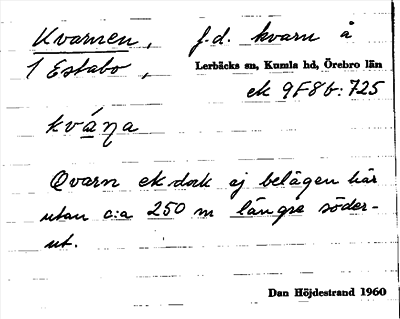 Kvarnen, f.d. kvarn å
1 Estabo, Lerbäcks sn, Kumla hd, Örebro län
ek 9F8b:725
kváꞃa
Qvarn ek dock ej belägen här
utan c:a 250 m längre söder-
ut.
Dan Höjdestrand 1960